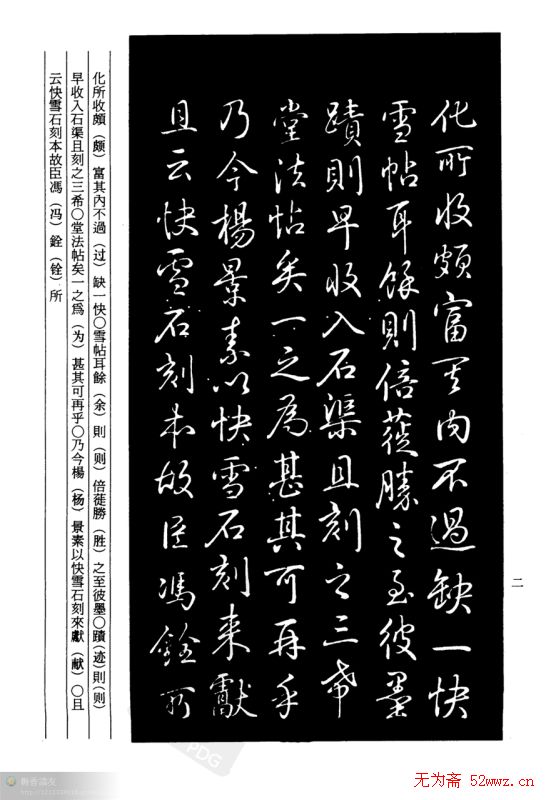 化所收頗富其内不過缺一快
雪帖耳餘則倍蓰勝之至彼墨
蹟則早收入石渠且刻之三希
堂法帖矣一之為甚其可再乎
乃今楊景素以快雪石刻来獻
且云快雪石刻本故臣馮銓所
二
化所收頗（颇）富其內不過（过）缺一快〇雪帖耳餘（余）則（则）倍蓰勝（胜）之至彼墨〇蹟（迹）則（则）
早收入石渠且刻之三希〇堂法帖矣一之爲（为）甚其可再乎〇乃今楊（杨）景素以快雪石刻來獻（献）〇且
云快雪石刻本故臣馮（冯）銓（铨）所
PDG
无为斋 52wwz.cn